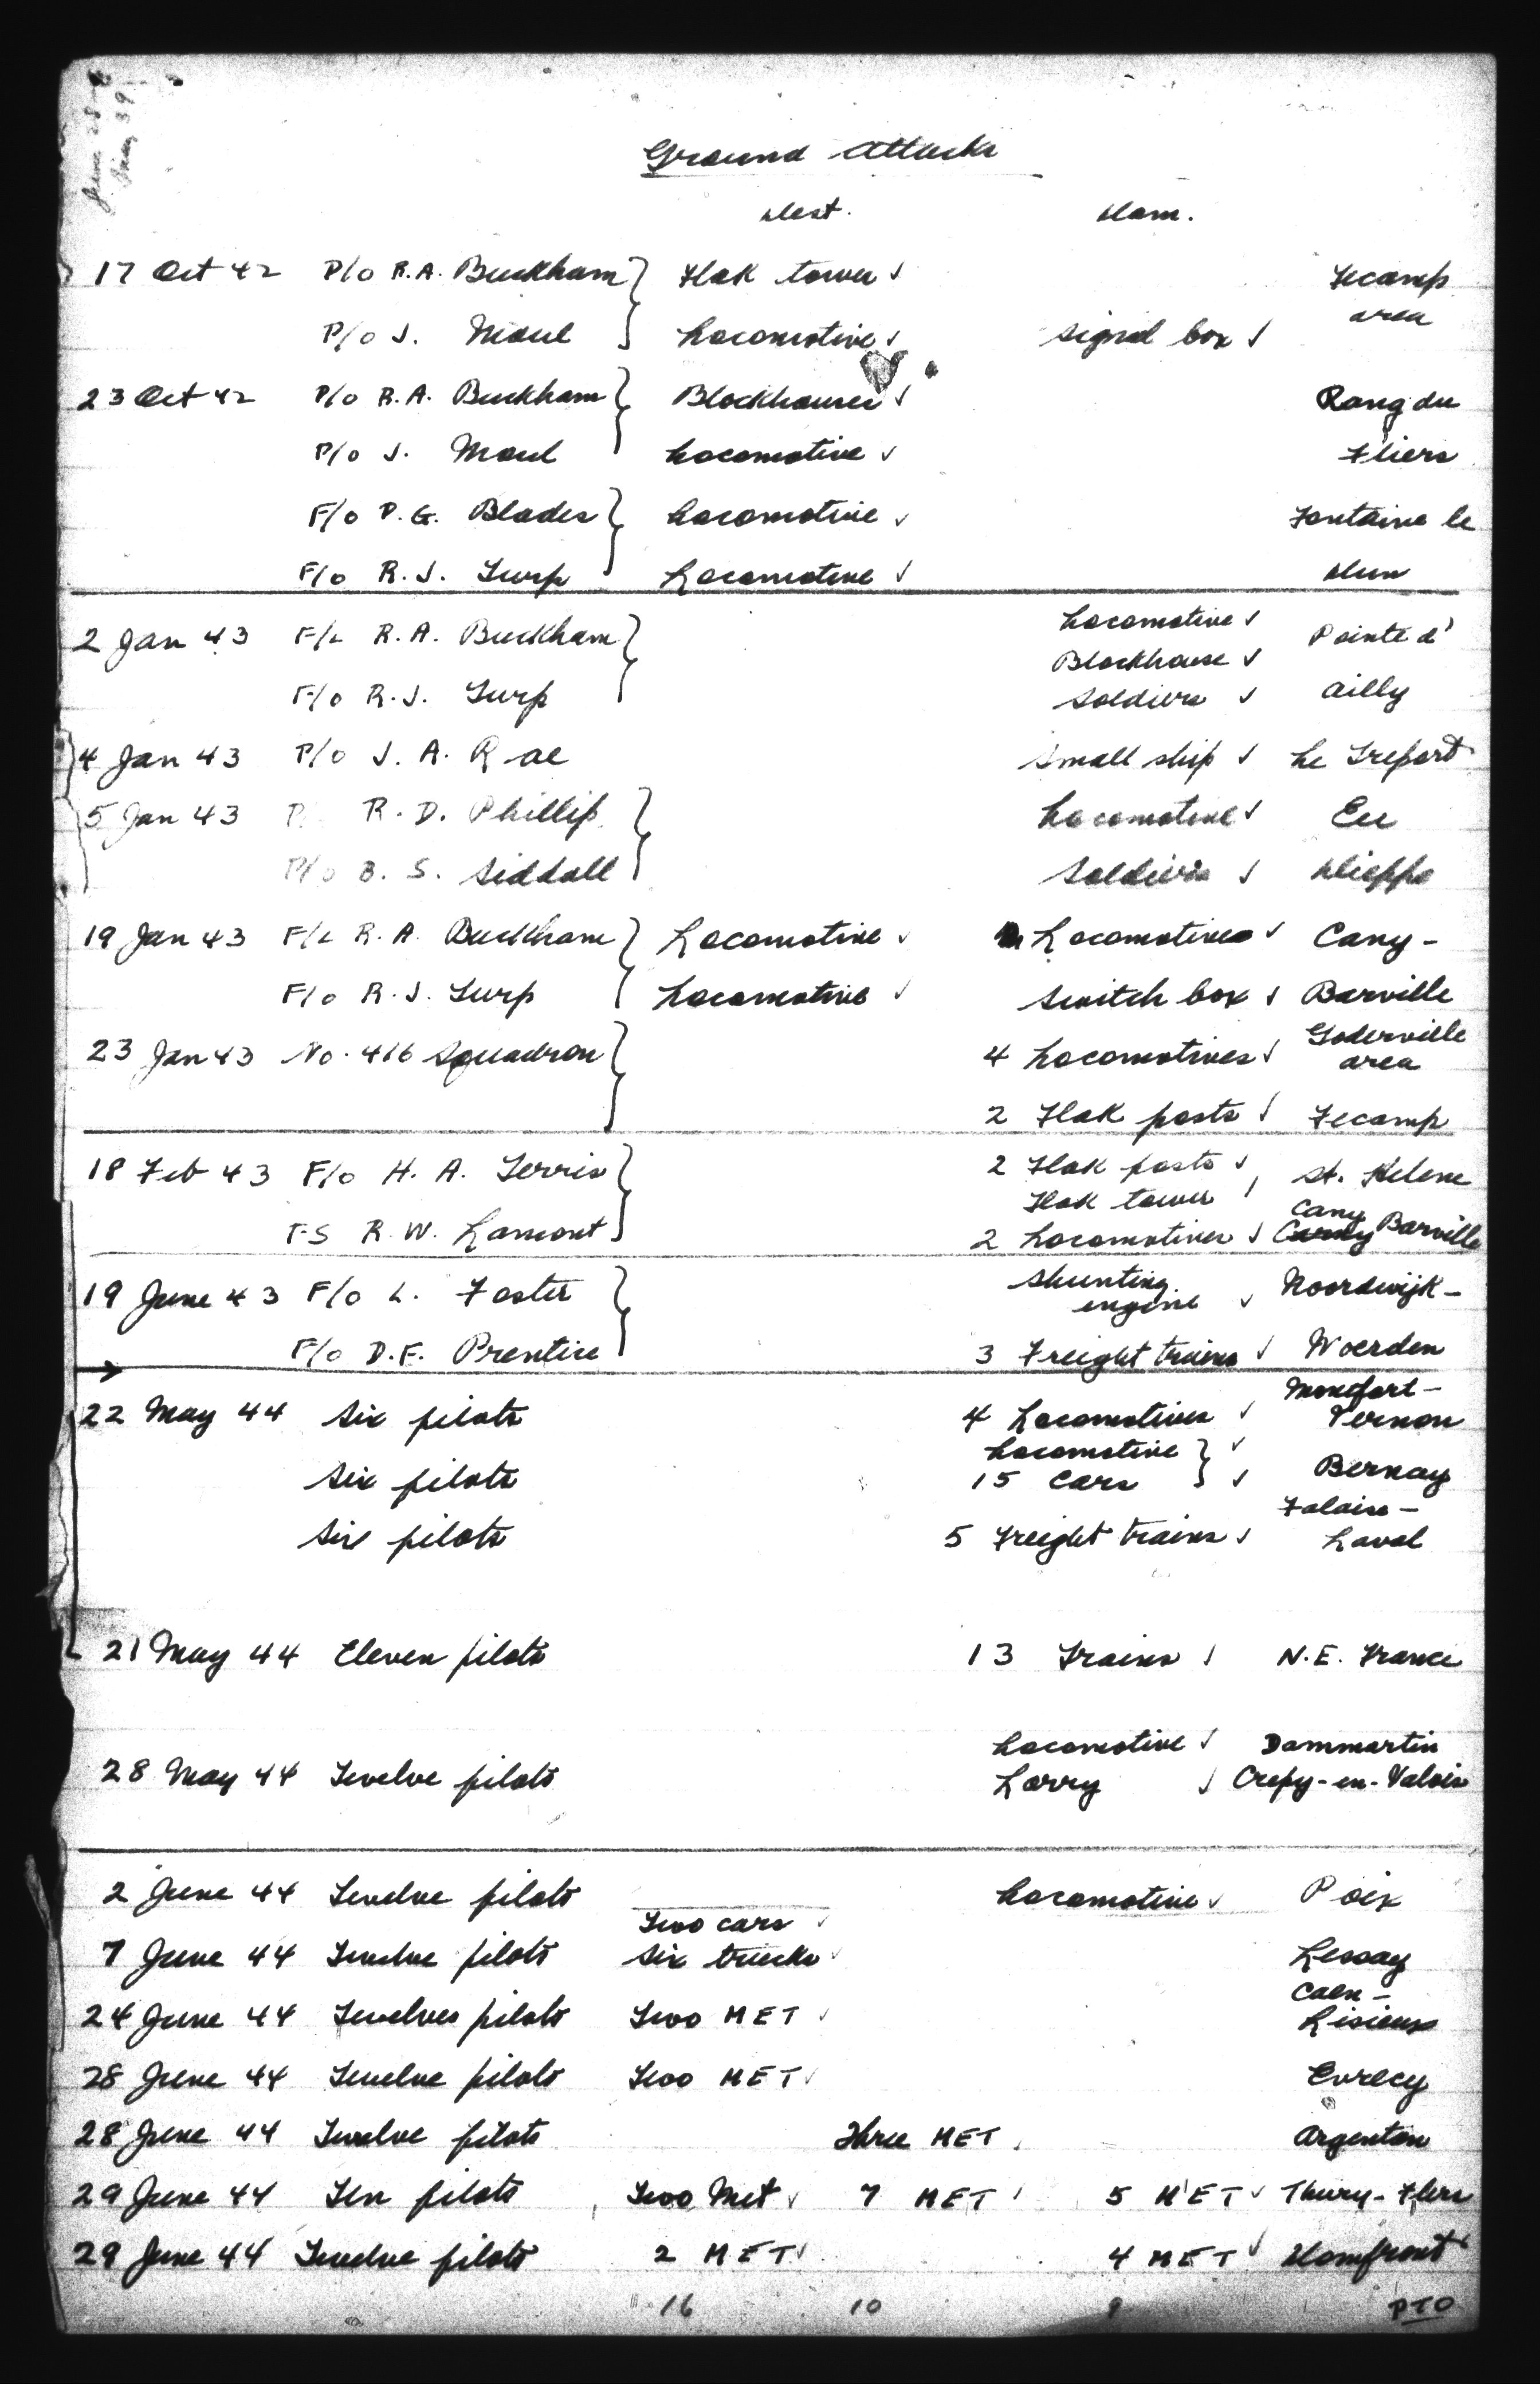 Ground Attacks
Dest. Dam.
17 Oct 42 P/O R.A. Buckham } Flak tower ✓ Fecamp
area
P/O J. Maul Locomotive ✓ Signal box ✓
23 Oct 42 P/O R.A. Buckham } Blockhouses ✓ Rang du
P/O J. Maul Locomotive ✓ Fliers
F/O D.G. Blades } Locomotive ✓ Fontaine le
F/O R.J. Turp Locomotive ✓ Dun
Locomotive ✓
2 Jan 43 F/L R.A. Buckham } Pointe d'
Blockhouse ✓
F/O R.J. Turp Soldiers ✓ Ailly
4 Jan 43 P/O J.A. Rae Small ship ✓ Le Treport
5 Jan 43 P R.D. Phillip } Locomotive ✓ Eu
P/O B.S. Siddall Soldiers ✓ Dieppe
19 Jan 43 F/L R.A. Buckham } Locomotive ✓ Locomotives ✓ Cany-
F/O R.J. Turp Locomotive ✓ Switch box ✓ Barville
23 Jan 43 No. 416 Squadron } 4 Locomotives ✓ Goderville
area
2 Flak posts ✓ Fecamp
18 Feb 43 F/O H.A. Ferris } 2 Flak posts ✓ St. Helene
Flak tower ✓ Cany
FS R.W. Lamont 2 Locomotives ✓ Barville
19 June 43 F/O L. Foster } Shunting
engine ✓ Noordwijk-
F/O D.F. Prentice 3 Freight trains ✓ Woerden
22 May 44 Six pilots 4 Locomotives ✓ Montfort-
Vernon
Locomotive } ✓
Six pilots 15 cars ✓ Bernay
Six pilots 5 Freight trains ✓ Falaise-
Laval
21 May 44 Eleven pilots 13 Trains ✓ N.E. France
Locomotive ✓ Dammartin
28 May 44 Twelve pilots Lorry ✓ Crepy-en-Valois
2 June 44 Twelve pilots Locomotive ✓ Poix
Two cars ✓
7 June 44 Twelve pilots Six trucks ✓ Lessay
24 June 44 Twelves pilots Two MET ✓ Caen-
Lisieux
28 June 44 Twelve pilots Two MET ✓ Evrecy
28 June 44 Twelve pilots Three MET Argentan
29 June 44 Ten pilots Two Met ✓ 7 MET 5 MET ✓ Thury-Flers
29 June 44 Twelve pilots 2 MET ✓ 4 MET ✓ Domfront
16 10 9 PTO